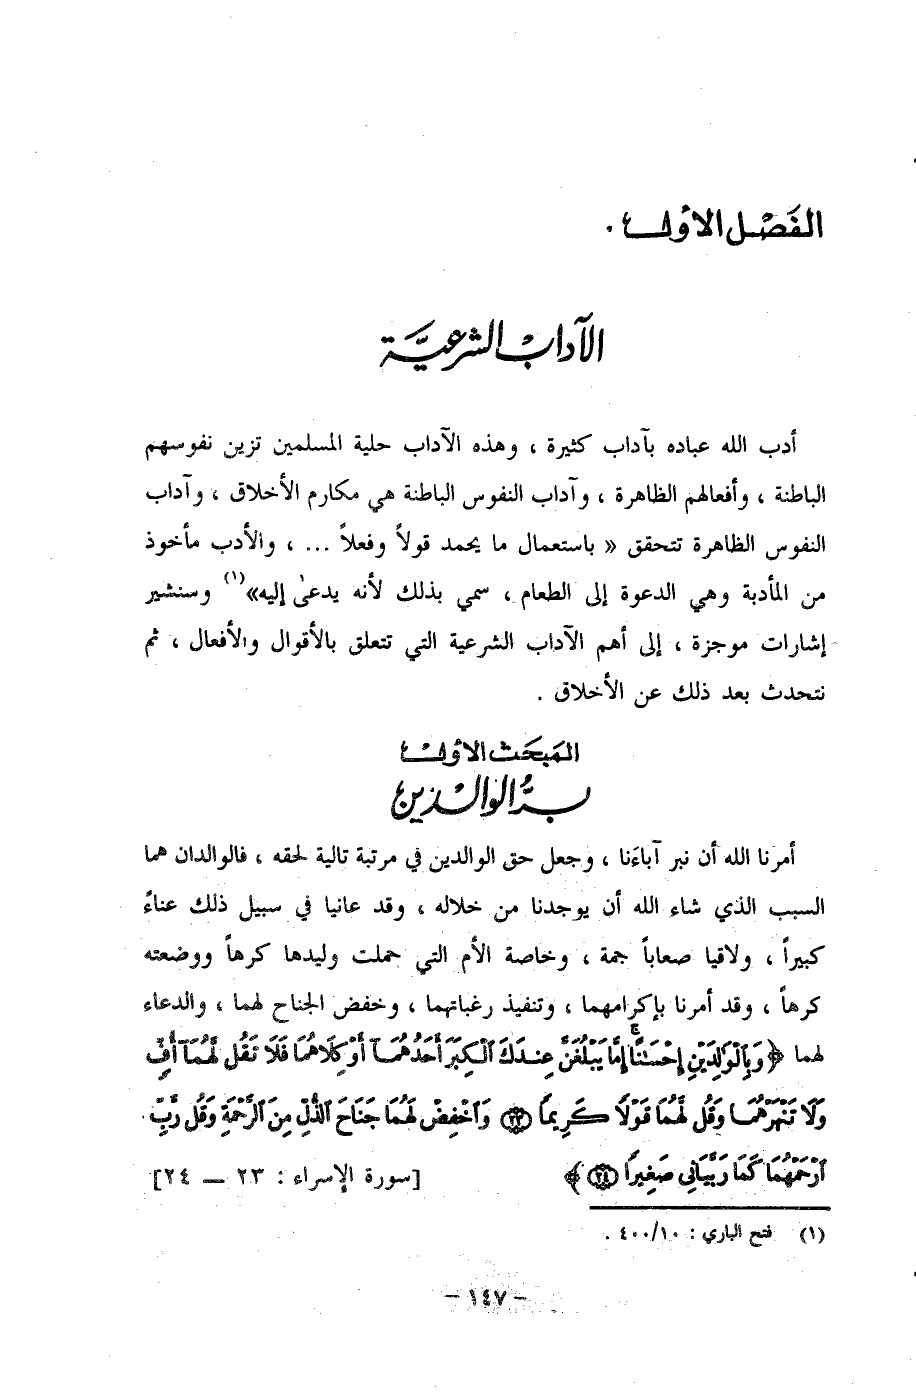 الفَصْل الأول .
الآداب الشرعيَّة
أدب الله عباده بآداب كثيرة ، وهذه الآداب حلية المسلمين تزين نفوسهم
الباطنة ، وأفعالهم الظاهرة ، وآداب النفوس الباطنة هي مكارم الأخلاق ، وآداب
النفوس الظاهرة تتحقق « باستعمال ما يحمد قولاً وفعلاً ... ، والأدب مأخوذ
من المأدبة وهي الدعوة إلى الطعام ، سمي بذلك لأنه يدعىٰ إليه»(١) وسنشير
إشارات موجزة ، إلى أهم الآداب الشرعية التي تتعلق بالأقوال والأفعال ، ثم
نتحدث بعد ذلك عن الأخلاق .
المبحَث الأول
بِرُّ الوالدين
أمرنا الله أن نبر آباءَنا ، وجعل حق الوالدين في مرتبة تالية لحقه ، فالوالدان هما
السبب الذي شاء الله أن يوجدنا من خلاله ، وقد عانيا في سبيل ذلك عناءً
كبيراً ، ولاقيا صعاباً جمة ، وخاصة الأم التي حملت وليدها كرهاً ووضعته
كرهاً ، وقد أمرنا بإكرامهما ، وتنفيذ رغباتهما ، وخفض الجناح لهما ، والدعاء
لهما ﴿ وَبِٱلْوَٰلِدَيْنِ إِحْسَٰنًا ۚ إِمَّا يَبْلُغَنَّ عِندَكَ ٱلْكِبَرَ أَحَدُهُمَآ أَوْ كِلَاهُمَا فَلَا تَقُل لَّهُمَآ أُفٍّ
وَلَا تَنْهَرْهُمَا وَقُل لَّهُمَا قَوْلًا كَرِيمًا ٢٣ وَٱخْفِضْ لَهُمَا جَنَاحَ ٱلذُّلِّ مِنَ ٱلرَّحْمَةِ وَقُل رَّبِّ
ٱرْحَمْهُمَا كَمَا رَبَّيَانِي صَغِيرًا ٢٤ ﴾ [سورة الإسراء : ٢٣ – ٢٤]
(١) فتح الباري : ٤٠٠/١٠ .
– ١٤٧ –